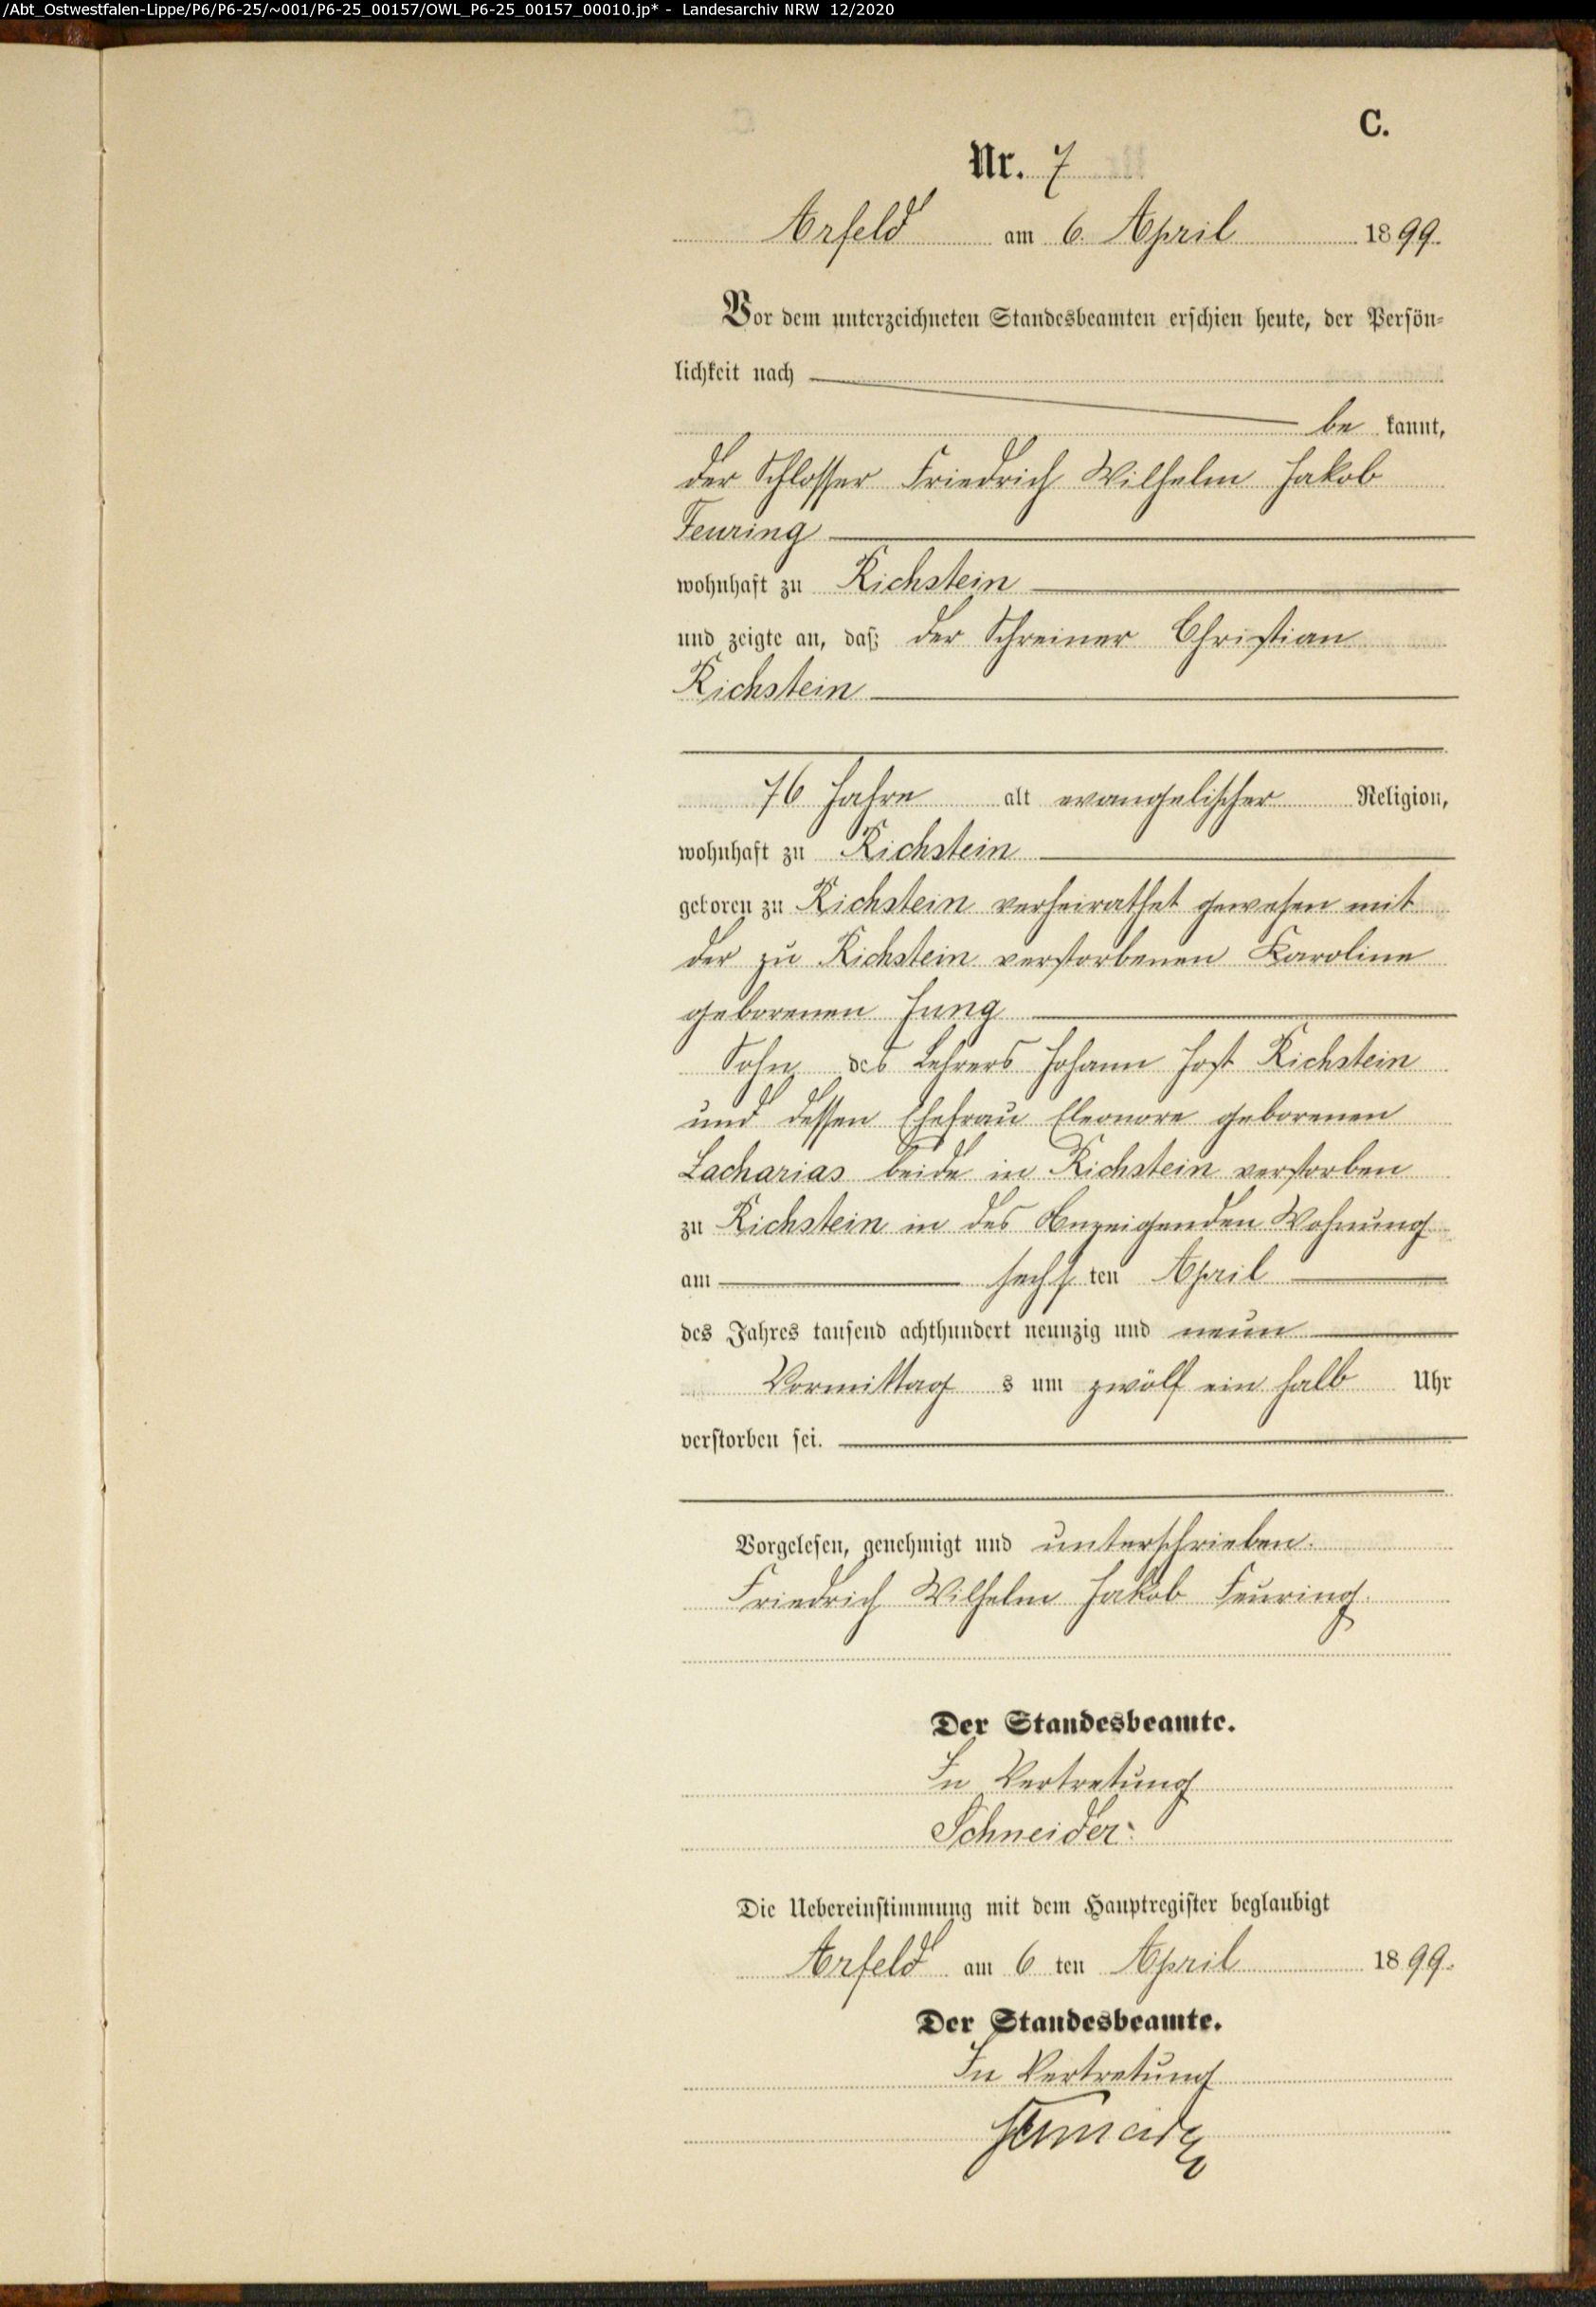 /Abt_Ostwestfalen-Lippe/P6/P6-25/~001/P6-25_00157/OWL_P6-25_00157_00010.jp* - Landesarchiv NRW 12/2020
C.
Nr. 7
Arfeld am 6. April 1899.
Vor dem unterzeichneten Standesbeamten erschien heute, der Persön-
lichkeit nach
be kannt,
der Schlosser Friedrich Wilhelm Jakob
Feuring
wohnhaft zu Richstein
und zeigte an, daß der Schreiner Christian
Richstein
76 Jahre alt evangelischer Religion,
wohnhaft zu Richstein
geboren zu Richstein verheirathet gewesen mit
der zu Richstein verstorbenen Karoline
geborenen Jung
Sohn des Lehrers Johann Jost Richstein
und dessen Ehefrau Eleonore geborenen
Zacharias beide in Richstein verstorben
zu Richstein in des Anzeigenden Wohnung
am sechsten April
des Jahres tausend achthundert neunzig und neun
Vormittag s um zwölf ein halb Uhr
verstorben sei.
Vorgelesen, genehmigt und unterschrieben.
Friedrich Wilhelm Jakob Feuring.
Der Standesbeamte.
In Vertretung
Schneider.
Die Uebereinstimmung mit dem Hauptregister beglaubigt
Arfeld am 6 ten April 1899.
Der Standesbeamte.
In Vertretung
Schneider